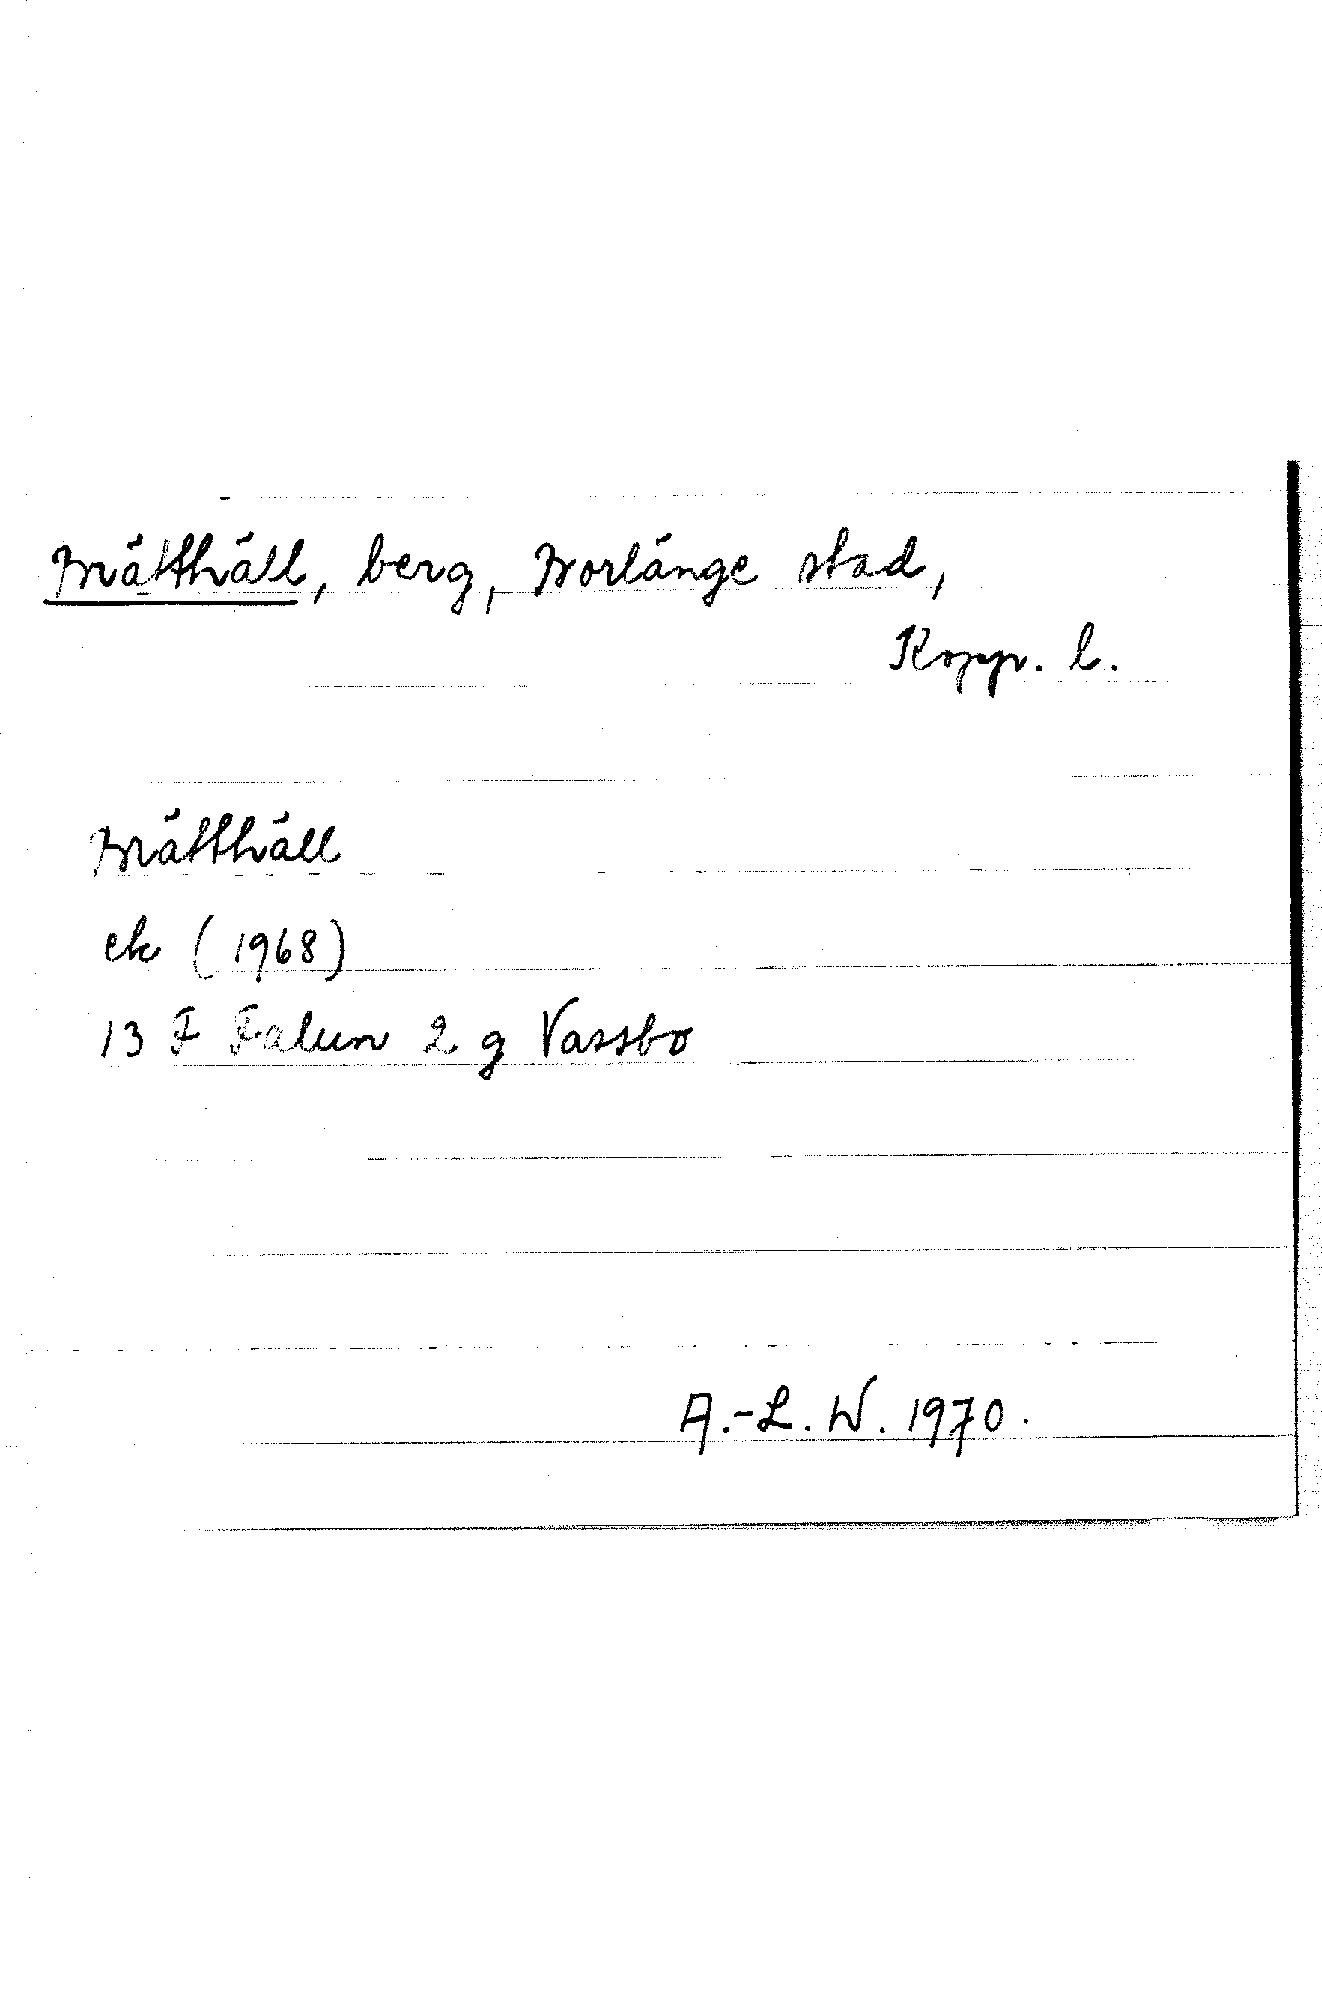 Brätthäll, berg, Borlänge stad,
Kopp. l.
Brätthäll
ek (1968)
13 F Falun 2 g Vassbo
A.-L. W. 1970.